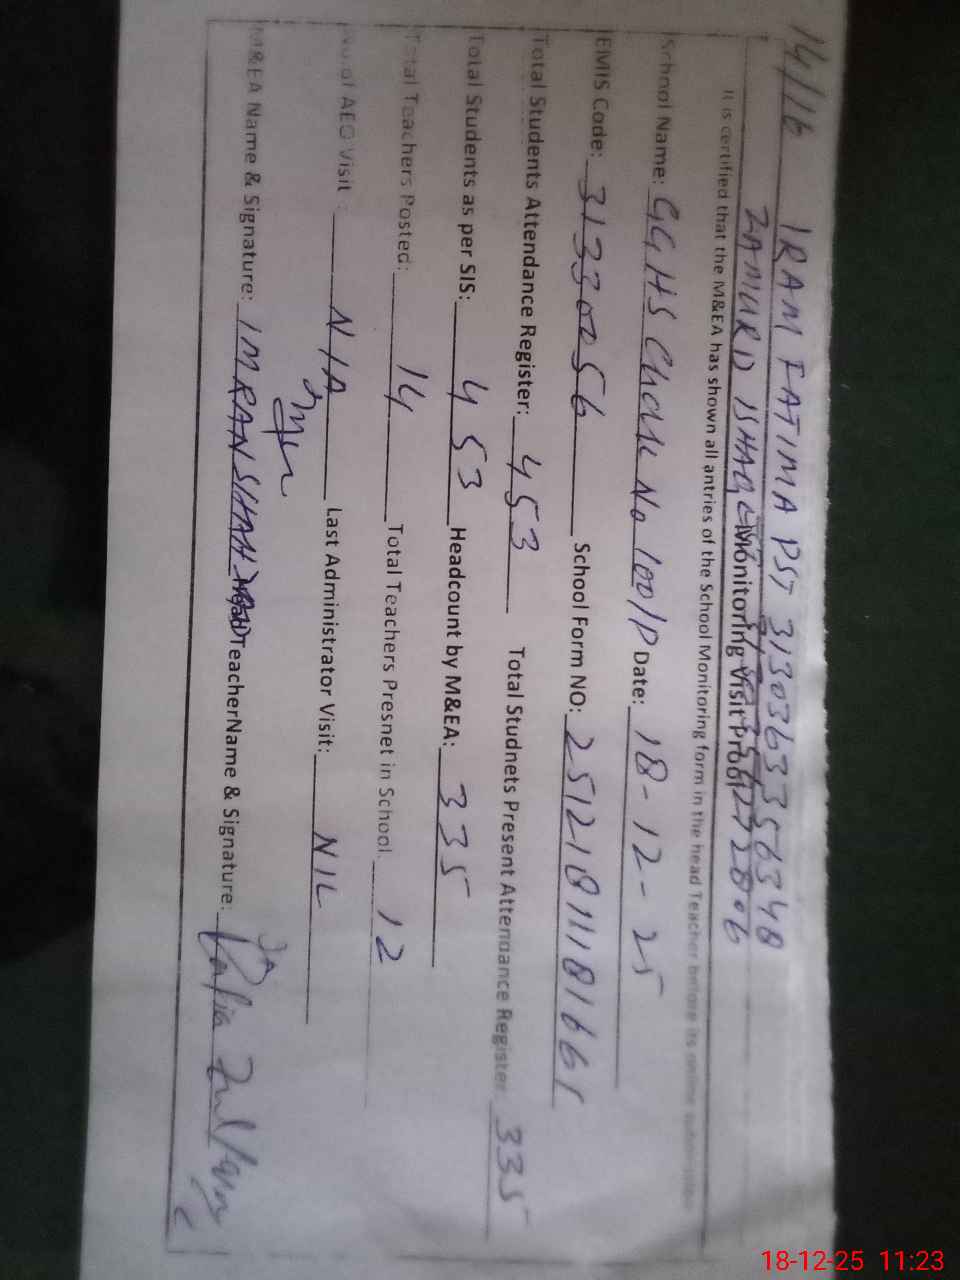 14/16 IRAM FATIMA PST 3130363356348
ZAMURD ISHAQ
Monitoring Visit Proof
It is certified that the M&EA has shown all antries of the School Monitoring form in the head Teacher before its online
School Name: GGHS Chak No 100/P Date: 18-12-25
EMIS Code: 31330056 School Form NO: 2512181118166
Total Students Attendance Register: 453 Total Studnets Present Attendance Register: 335
Total Students as per SIS: 453 Headcount by M&EA: 335
Total Teachers Posted: 14 Total Teachers Presnet in School: 12
No of AEO Visit : N/A Last Administrator Visit: NIL
M&EA Name & Signature: IMRAN SHAH Head TeacherName & Signature:
18-12-25 11:23